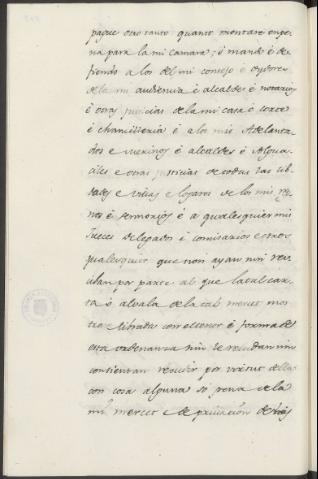 pague otro tanto quanto montare en pe
na para la mi camara; é mando é de
fiendo a los del mi consejo é oydores
de la mi audiencia é alcaldes é notarios
é otras justicias de la mi casa é corte
é chancilleria é a los mis Adelanta
dos e merinos é alcaldes é Algua
ciles e otras justicias de todas las cib
dades e villas e logares de los mis rey
nos é sennorios é a qualesquier mis
Jueces delegados é comisarios e otros
qualesquier que non ayan nin reci
ban por parte al que la tal car
ta ó alvala de la tal merced mos
trare librada con el tenor é forma de
esta ordenanza nin le reciban nin
consientan rescivir por virtud della
con cosa alguna so pena de la
mi merced e de privacion de los